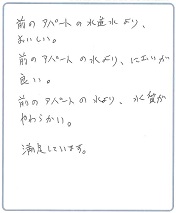 前のアパートの水道水より、
おいしい。
前のアパートの水より、にエいが
良い。
前のアパートの水より、水質が
やわらかい。
満足しています。